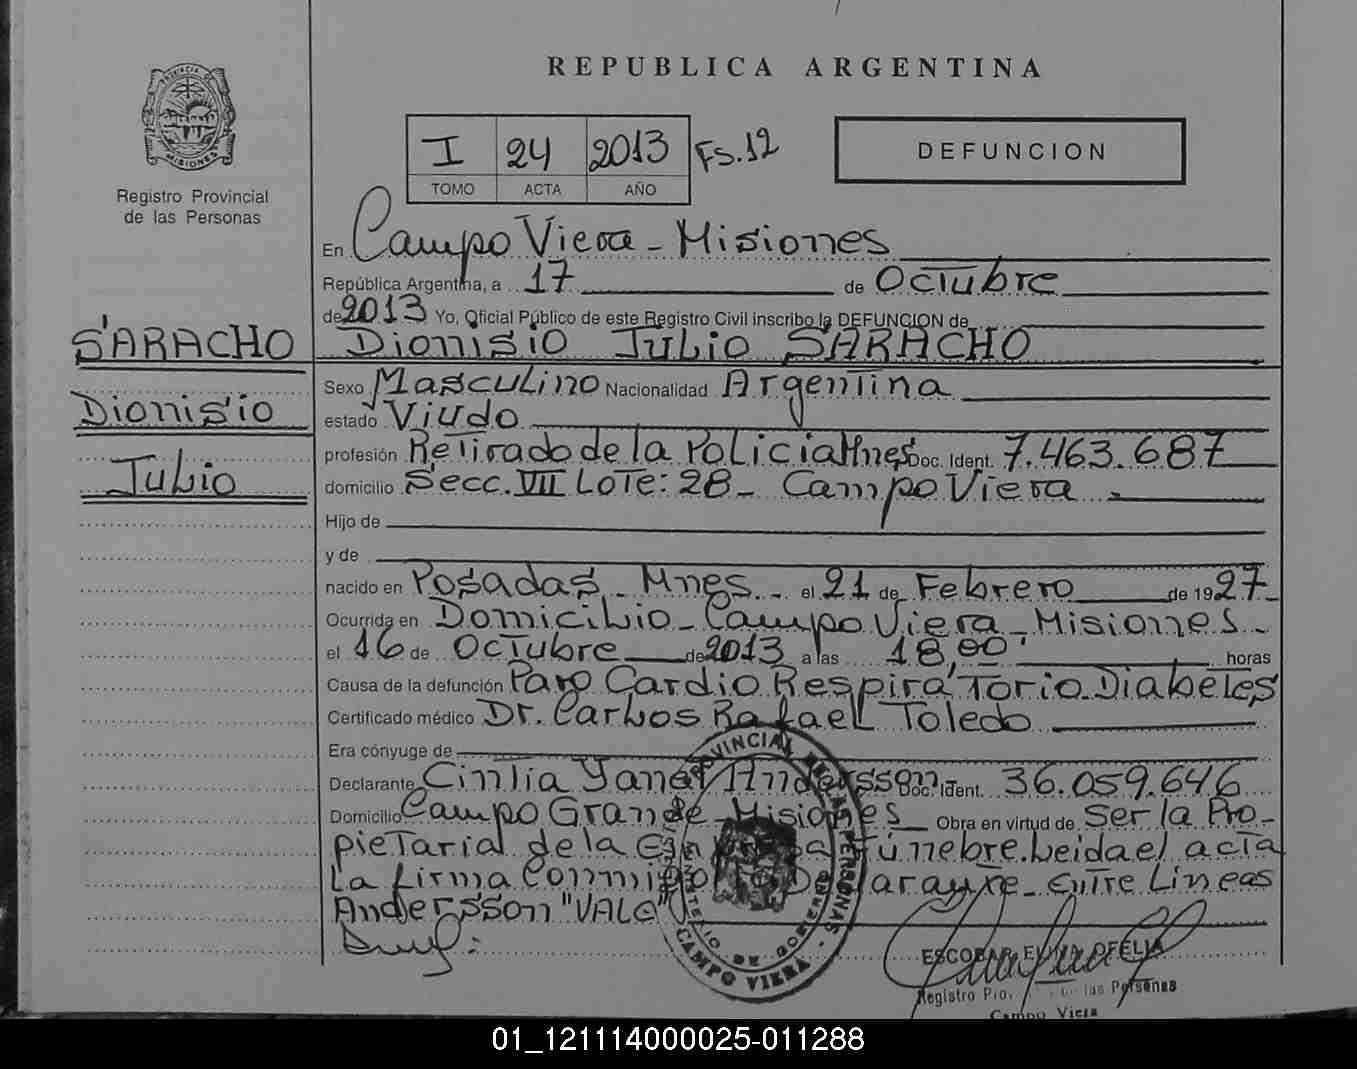 REPUBLICA ARGENTINA
PROVINCIA DE
MISIONES
Registro Provincial
de las Personas
I 24 2013 Fs.12
TOMO ACTA AÑO
DEFUNCION
En Campo Viera - Misiones
República Argentina, a 17 de Octubre
de 2013 Yo, Oficial Público de este Registro Civil inscribo la DEFUNCION de
SARACHO
Dionisio
Julio
Dionisio Julio SARACHO
Sexo Masculino Nacionalidad Argentina
estado Viudo
profesión Retirado de la Policia Mnes Doc. Ident. 7.463.687
domicilio Secc. VII Lote: 28 - Campo Viera
Hijo de
y de
nacido en Posadas - Mnes - el 21 de Febrero de 1927
Ocurrida en Domicilio - Campo Viera - Misiones -
el 16 de Octubre de 2013 a las 18,00 horas
Causa de la defunción Paro Cardio Respiratorio - Diabetes
Certificado médico Dr. Carlos Rafael Toledo
Era cónyuge de
Declarante Cintia Yanet Andersson - Doc. Ident. 36.059.646
Domicilio Campo Grande - Misiones Obra en virtud de Ser la Pro-
pietaria de la Empresa Fúnebre. Leida el acta
la firma Conmigo la Declarante - entre Lineas
Andersson "VALE"
PROVINCIAL DE LAS PERSONAS
MINISTERIO DE GOBIERNO
CAMPO VIERA
ESCOBAR ELINA OFELIA
Registro Pro. de las Personas
Campo Viera
01_121114000025-011288